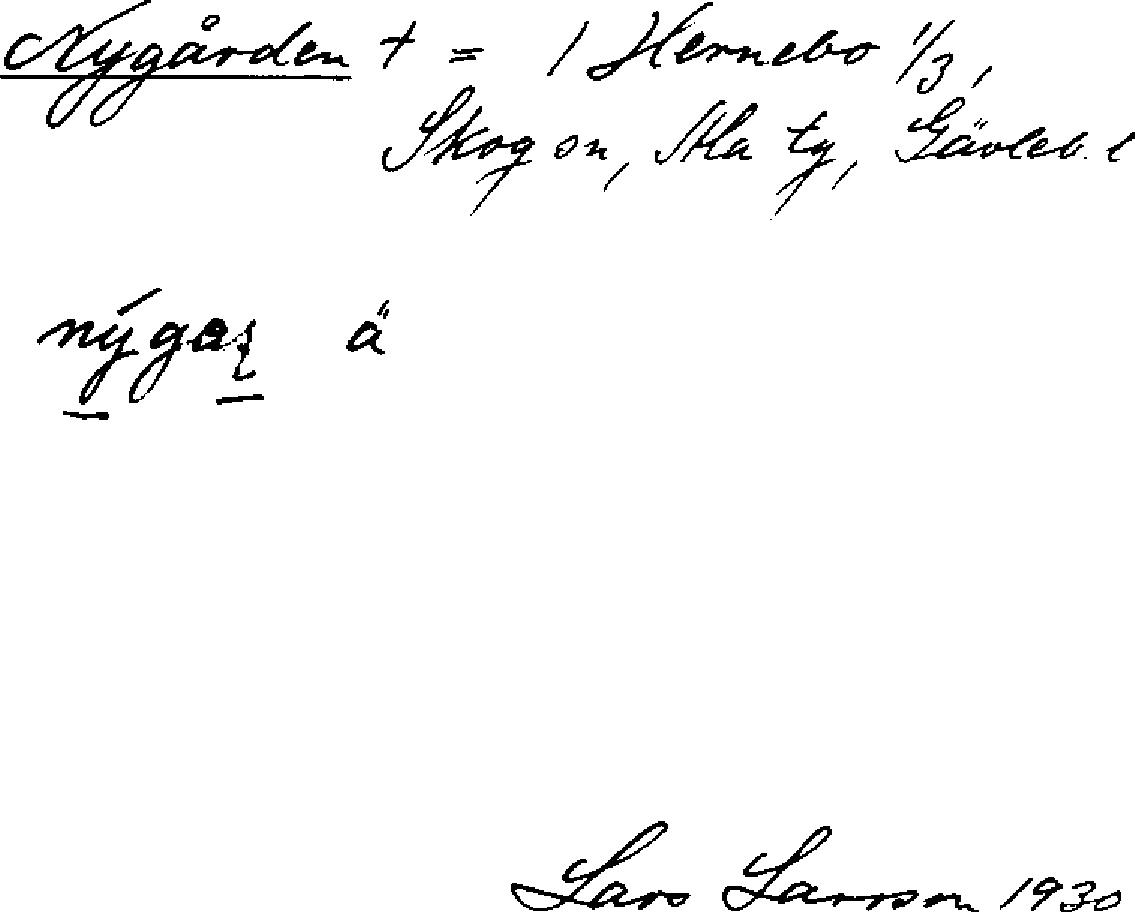 Nygården + = 1 Hernebo 1/3,
Skog sn, Ala tg, Gävleb. l
Lars Larsson 1930